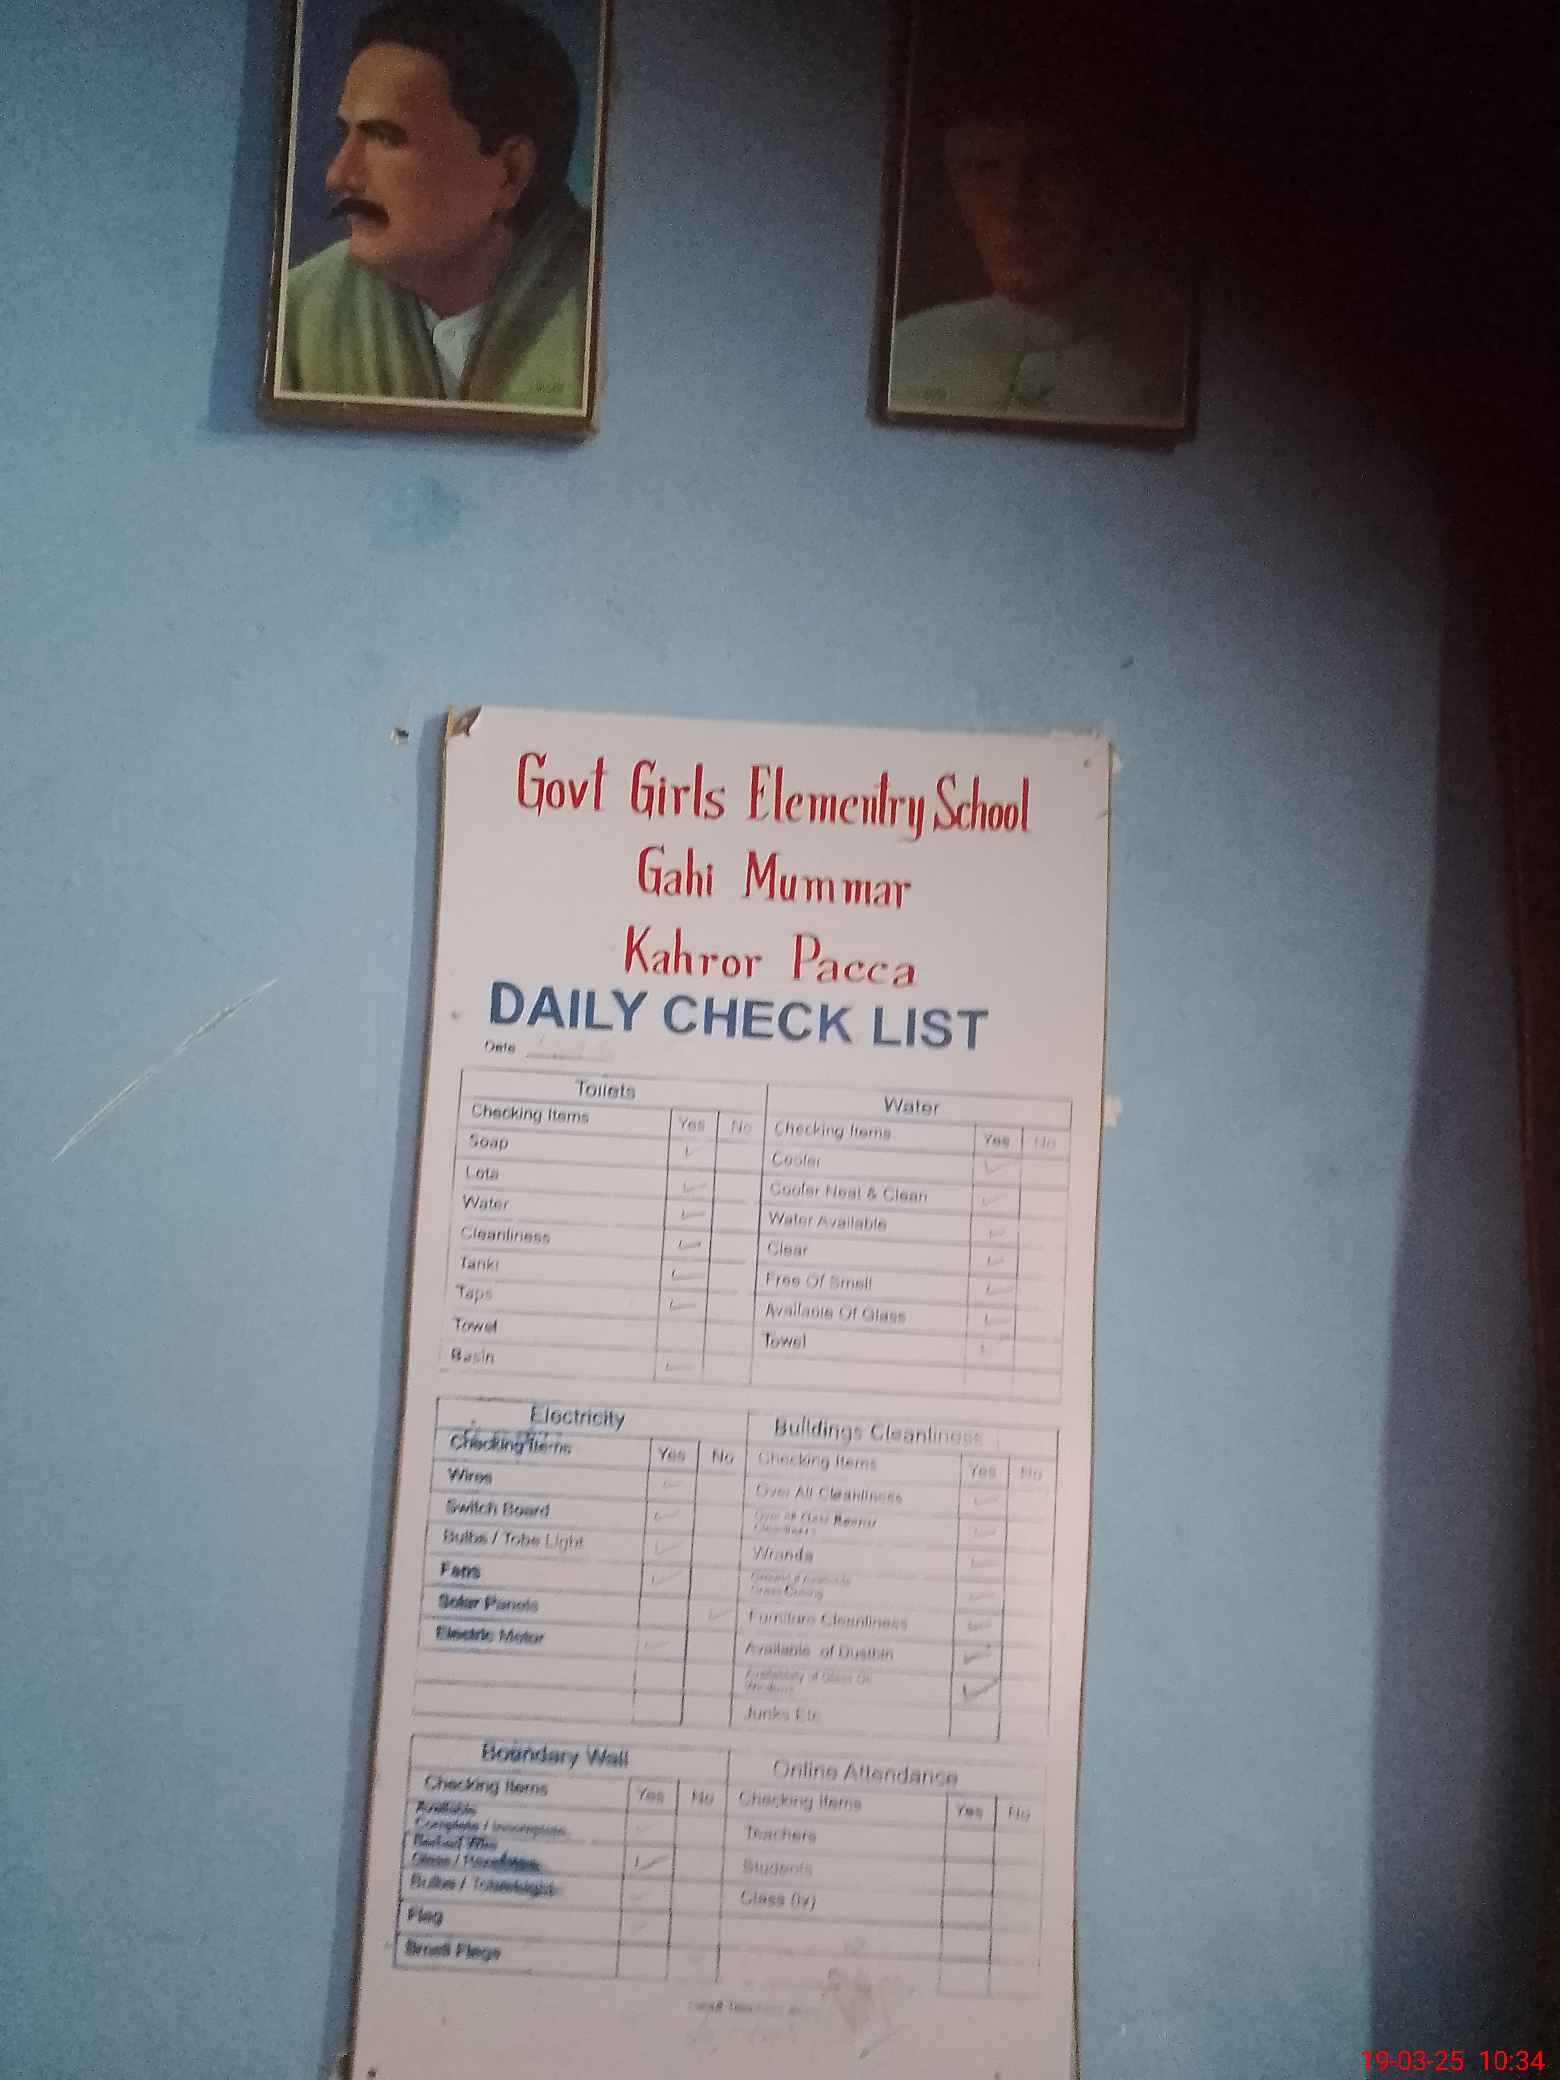 Govt Girls Elementry School
Gahi Mummar
Kahror Pacca
DAILY CHECK LIST
Date
Toilets
Checking Items Yes No
Soap
Lota
Water
Cleanliness
Tanki
Taps
Towel
Basin
Water
Checking Items Yes No
Cooler
Cooler Neat & Clean
Water Available
Clear
Free Of Smell
Available Of Glass
Towel
Electricity
Checking Items Yes No
Wires
Switch Board
Bulbs / Tobe Light
Fans
Solar Panels
Electric Motor
Buildings Cleanliness
Checking Items Yes No
Over All Cleanliness
Over All Class Rooms
Cleanliness
Wranda
Grass Cutting
Furniture Cleanliness
Available of Dustbin
Availability of Glass On
Windows
Junks Etc
Boundary Wall
Checking Items Yes No
Available
Complete / Incomplete
Wire
Glass /
Bulbs /
Flag
Small Flags
Online Attendance
Checking Items Yes No
Teachers
Students
Class (iv)
19-03-25 10:34